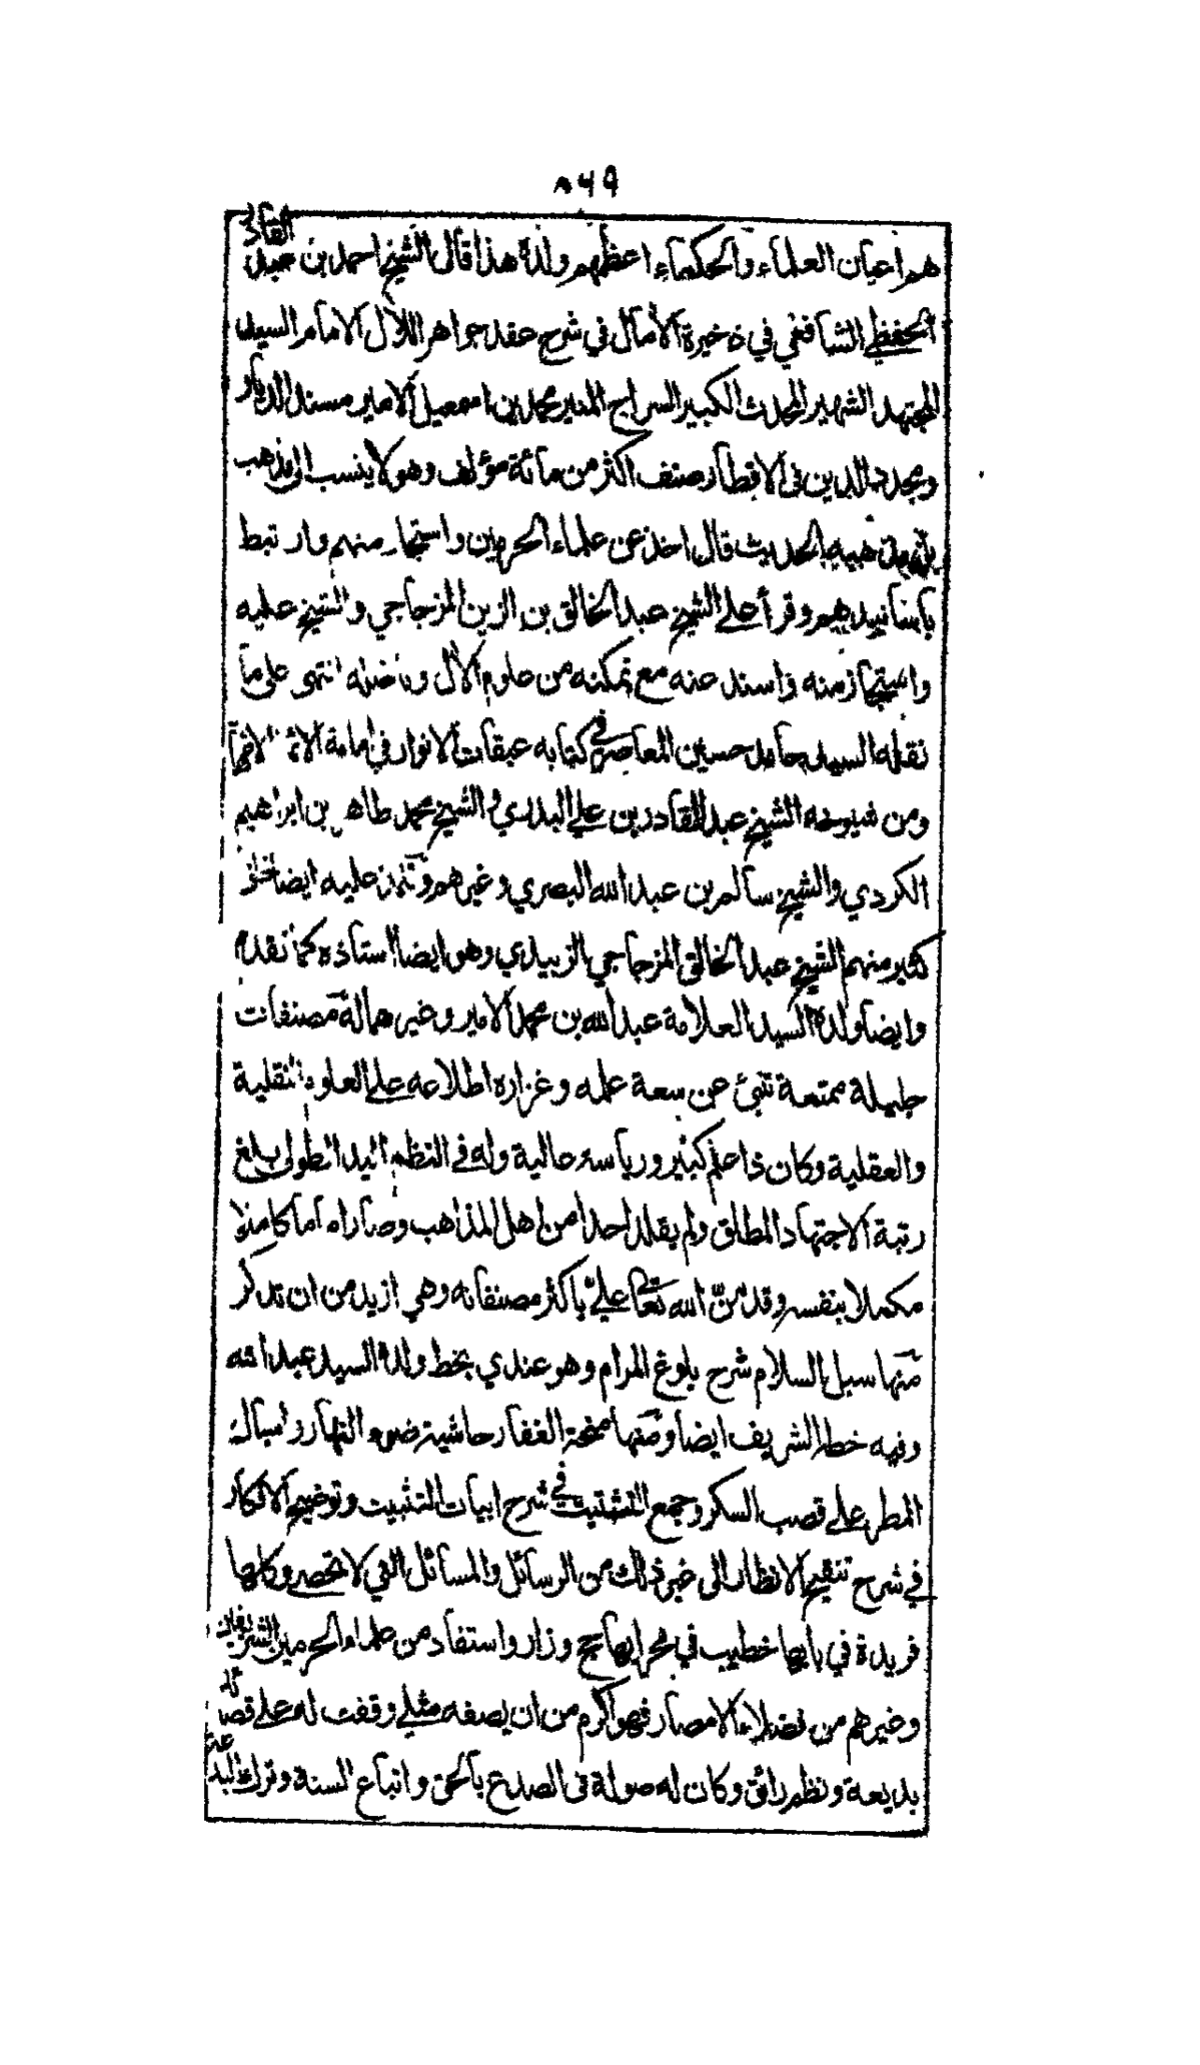 ٨٦٩
هم اعيان العلماء والحكماء اعظمهم ولذا هذا قال الشيخ احمد بن عبد القادر
الحفظي الشافعي في ذخيرة الامال في شرح عقد جواهر اللآل الامام السيد
المجتهد الشهير المحدث الكبير السراج المنير محمد بن اسمعيل الامير مسند الديار
ومجدد الدين فى الاقطار صنف اكثر من مائة مؤلف وهو لا ينسب الى مذهب
بل مذهبه الحديث قال اخذ عن علماء الحرمين واستجاز منهم وارتبط
باسانيدهم وقرأ على الشيخ عبد الخالق بن الزين المزجاجي والشيخ عليه
واستجاز منه واسند عنه مع تمكنه من علوم الآل انتهى على ما
نقله السيد حامد حسين المعاصر في كتابه عبقات الانوار في امامة الائمة
ومن شيوخه الشيخ عبد القادر بن علي البدري والشيخ محمد طاهر بن ابراهيم
الكردي والشيخ سالم بن عبد الله البصري وغيرهم وتلمذ عليه ايضا خلق
كثير منهم الشيخ عبد الخالق المزجاجي الزبيدي وهو ايضا استاذه كما تقدم
وايضا ولده السيد العلامة عبد الله بن محمد الامير وغيرهما له مصنفات
جليلة ممتعة تنبئ عن سعة علمه وغزارة اطلاعه على العلوم النقلية
والعقلية وكان ذا علم كثير ورياسة عالية وله في النظم اليد الطولى بلغ
رتبة الاجتهاد المطلق ولم يقلد احدا من اهل المذاهب وصار اماما كاملا
مكملا بنفسه وقد من الله تعالى علي باكثر مصنفاته وهي ازيد من ان تذكر
منها سبل السلام شرح بلوغ المرام وهو عندي بخط ولده السيد عبد الله
وفيه خطه الشريف ايضا ومنها منحة الغفار حاشية ضوء النهار واسبالة
المطر على قصب السكر وجمع التشتيت في شرح ابيات التثبيت وتوضيح الافكار
في شرح تنقيح الانظار الى غير ذلك من الرسائل والمسائل التي لا تحصى وكلها
فريدة في بابها خطيب في محرابها حج وزار واستفاد من علماء الحرمين الشريفين
وغيرهم من فضلاء الامصار فهو اكرم من ان يصفه مثلي وقفت له على قصائد
بديعة ونظم رائق وكان له صولة فى الصدع بالحق واتباع السنة وترك البدعة